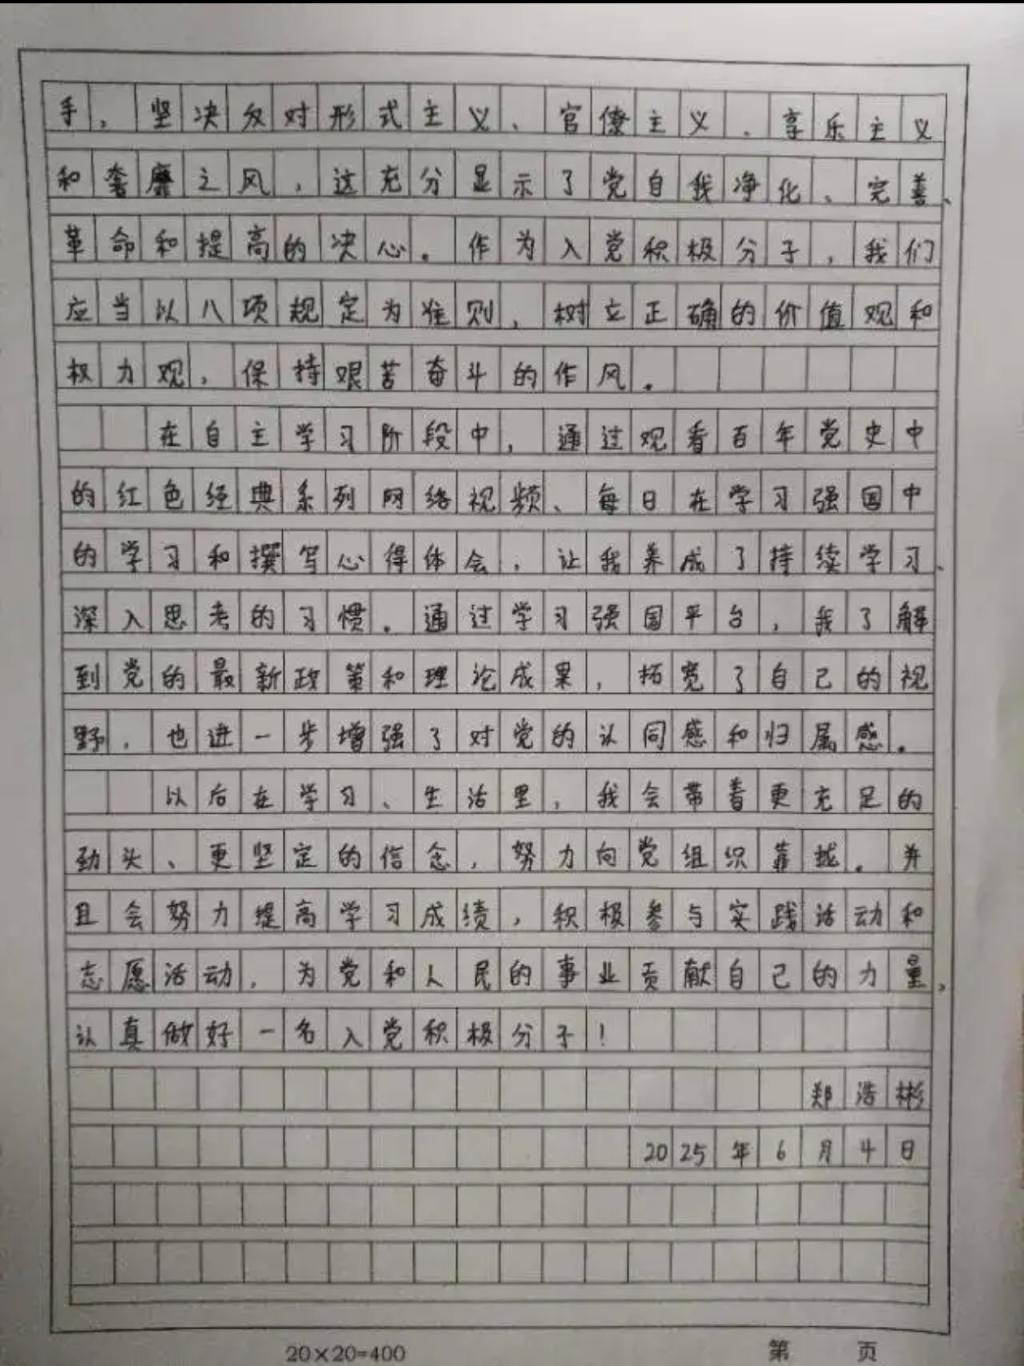 手，坚决反对形式主义、官僚主义、享乐主义
和奢靡之风，这充分显示了党自我净化、完善、
革命和提高的决心。作为入党积极分子，我们
应当以八项规定为准则，树立正确的价值观和
权力观，保持艰苦奋斗的作风。
在自主学习阶段中，通过观看百年党史中
的红色经典系列网络视频、每日在学习强国中
的学习和撰写心得体会，让我养成了持续学习、
深入思考的习惯。通过学习强国平台，我了解
到党的最新政策和理论成果，拓宽了自己的视
野，也进一步增强了对党的认同感和归属感。
以后在学习、生活里，我会带着更充足的
劲头、更坚定的信念，努力向党组织靠拢。并
且会努力提高学习成绩，积极参与实践活动和
志愿活动，为党和人民的事业贡献自己的力量，
认真做好一名入党积极分子！
郑浩彬
2025年6月4日
20×20=400 第 页